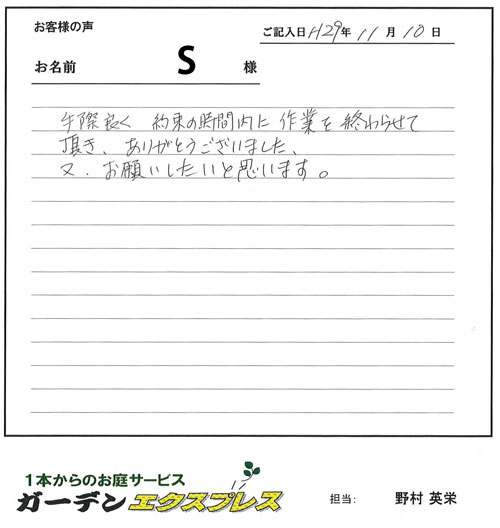 お客様の声
ご記入日 H29年 11月 10日
お名前 S 様
手際良く 約束の時間内に 作業を 終わらせて
頂き、ありがとうございました、
又、お願いしたいと思います。
1本からのお庭サービス
ガーデンエクスプレス
担当: 野村 英栄